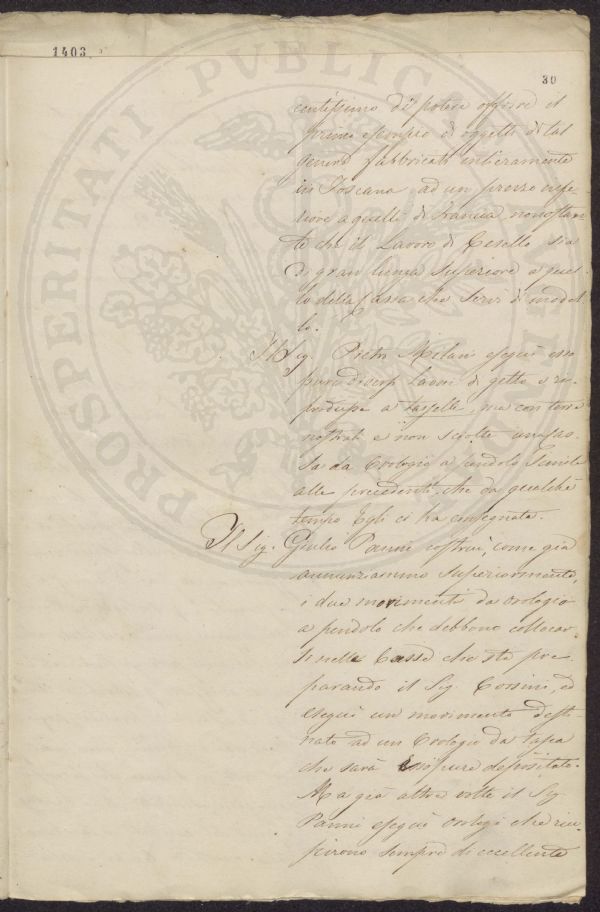 1403
30
centissimo di potere offrire il
primo esempio di oggetti di tal
genere fabbricati intieramente
in Toscana ad un prezzo infe-
riore a quelli di Francia nonostan-
te che il Lavoro di Cesello sia
di gran lunga superiore a quel-
lo della Cassa che servì di model
lo.
Il Sig. Pietro Milani eseguì esso
pure diversi Lavori di getto e ri-
produsse a tasselli, ma con terre
nostrali e non sciolte una Cas-
sa da Orologio a pendolo simile
alle precedenti, che da qualche
tempo Egli ci ha consegnata.
Il Sig. Giulio Pannì costruì, come già
annunziammo superiormente,
i due movimenti da orologio
a pendolo che debbono collocar-
si nelle Casse che sta pre-
parando il Sig. Corsini, ed
eseguì un movimento desti-
nato ad un Orologio da tasca
che sarà pure depositato.
Ma già altre volte il Sig
Panni eseguì orologi che riu-
scirono sempre di eccellente
PROSPERITATI PUBLIC